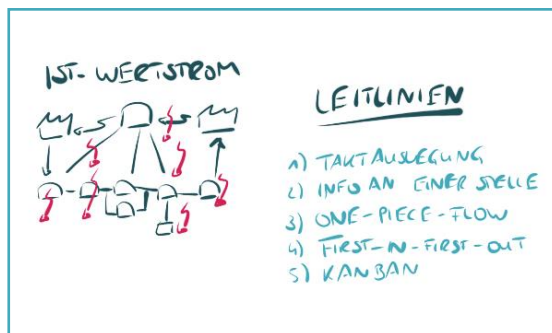 IST-WERTSTROM
LEITLINIEN
1) TAKTAUSLEGUNG
2) INFO AN EINER STELLE
3) ONE-PIECE-FLOW
4) FIRST-IN-FIRST-OUT
5) KANBAN